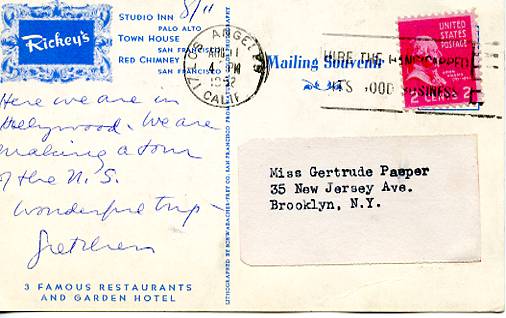 Rickey's
STUDIO INN
PALO ALTO
TOWN HOUSE
SAN FRANCISCO
RED CHIMNEY
SAN FRANCISCO
8/11
Here we are in
Hollywood. We are
making a tour
of the U.S.
Wonderful trip -
Gretchen
3 FAMOUS RESTAURANTS
AND GARDEN HOTEL
LOS ANGELES
4 PM
1952
CALIF
Mailing Souvenir
HIRE THE HANDICAPPED
IT'S GOOD BUSINESS
UNITED
STATES
POSTAGE
JOHN
ADAMS
2 CENTS 2
Miss Gertrude Paeper
35 New Jersey Ave.
Brooklyn, N.Y.